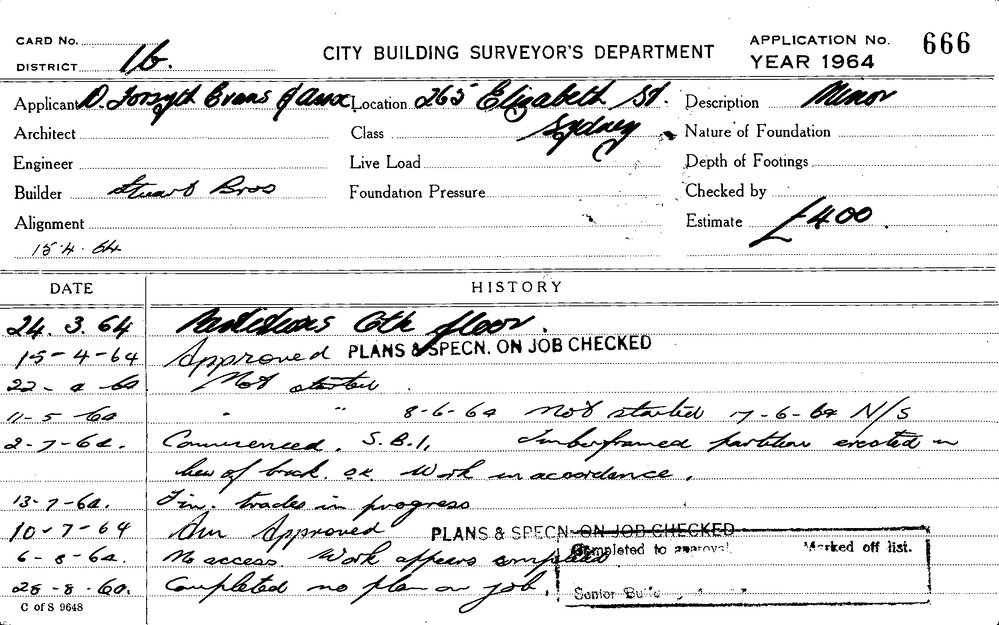 CARD No.
DISTRICT 16.
CITY BUILDING SURVEYOR'S DEPARTMENT
APPLICATION No. 666
YEAR 1964
Applicant D. Forsyth Evans & Assoc Location 265 Elizabeth St. Description Minor
Architect Class Sydney Nature of Foundation
Engineer Live Load Depth of Footings
Builder Stuart Bros Foundation Pressure Checked by
Alignment Estimate £400
15.4.64
DATE HISTORY
24.3.64 Partitions 6th floor.
15-4-64 Approved PLANS & SPECN. ON JOB CHECKED
22-4-64 Not started
11-5-64 " " 8-6-64 Not started 17-6-64 N/S
2-7-64. Commenced. S.B.I. Timberframed partition erected in
lieu of brick. OK. Work in accordance.
13-7-64. Fin. trades in progress
10-7-64 Am Approved PLANS & SPECN. ON JOB CHECKED
6-8-64. No access. Work appears completed
Completed to approval. Marked off list.
28-8-64. Completed no plan on job.
Senior
C of S 9648